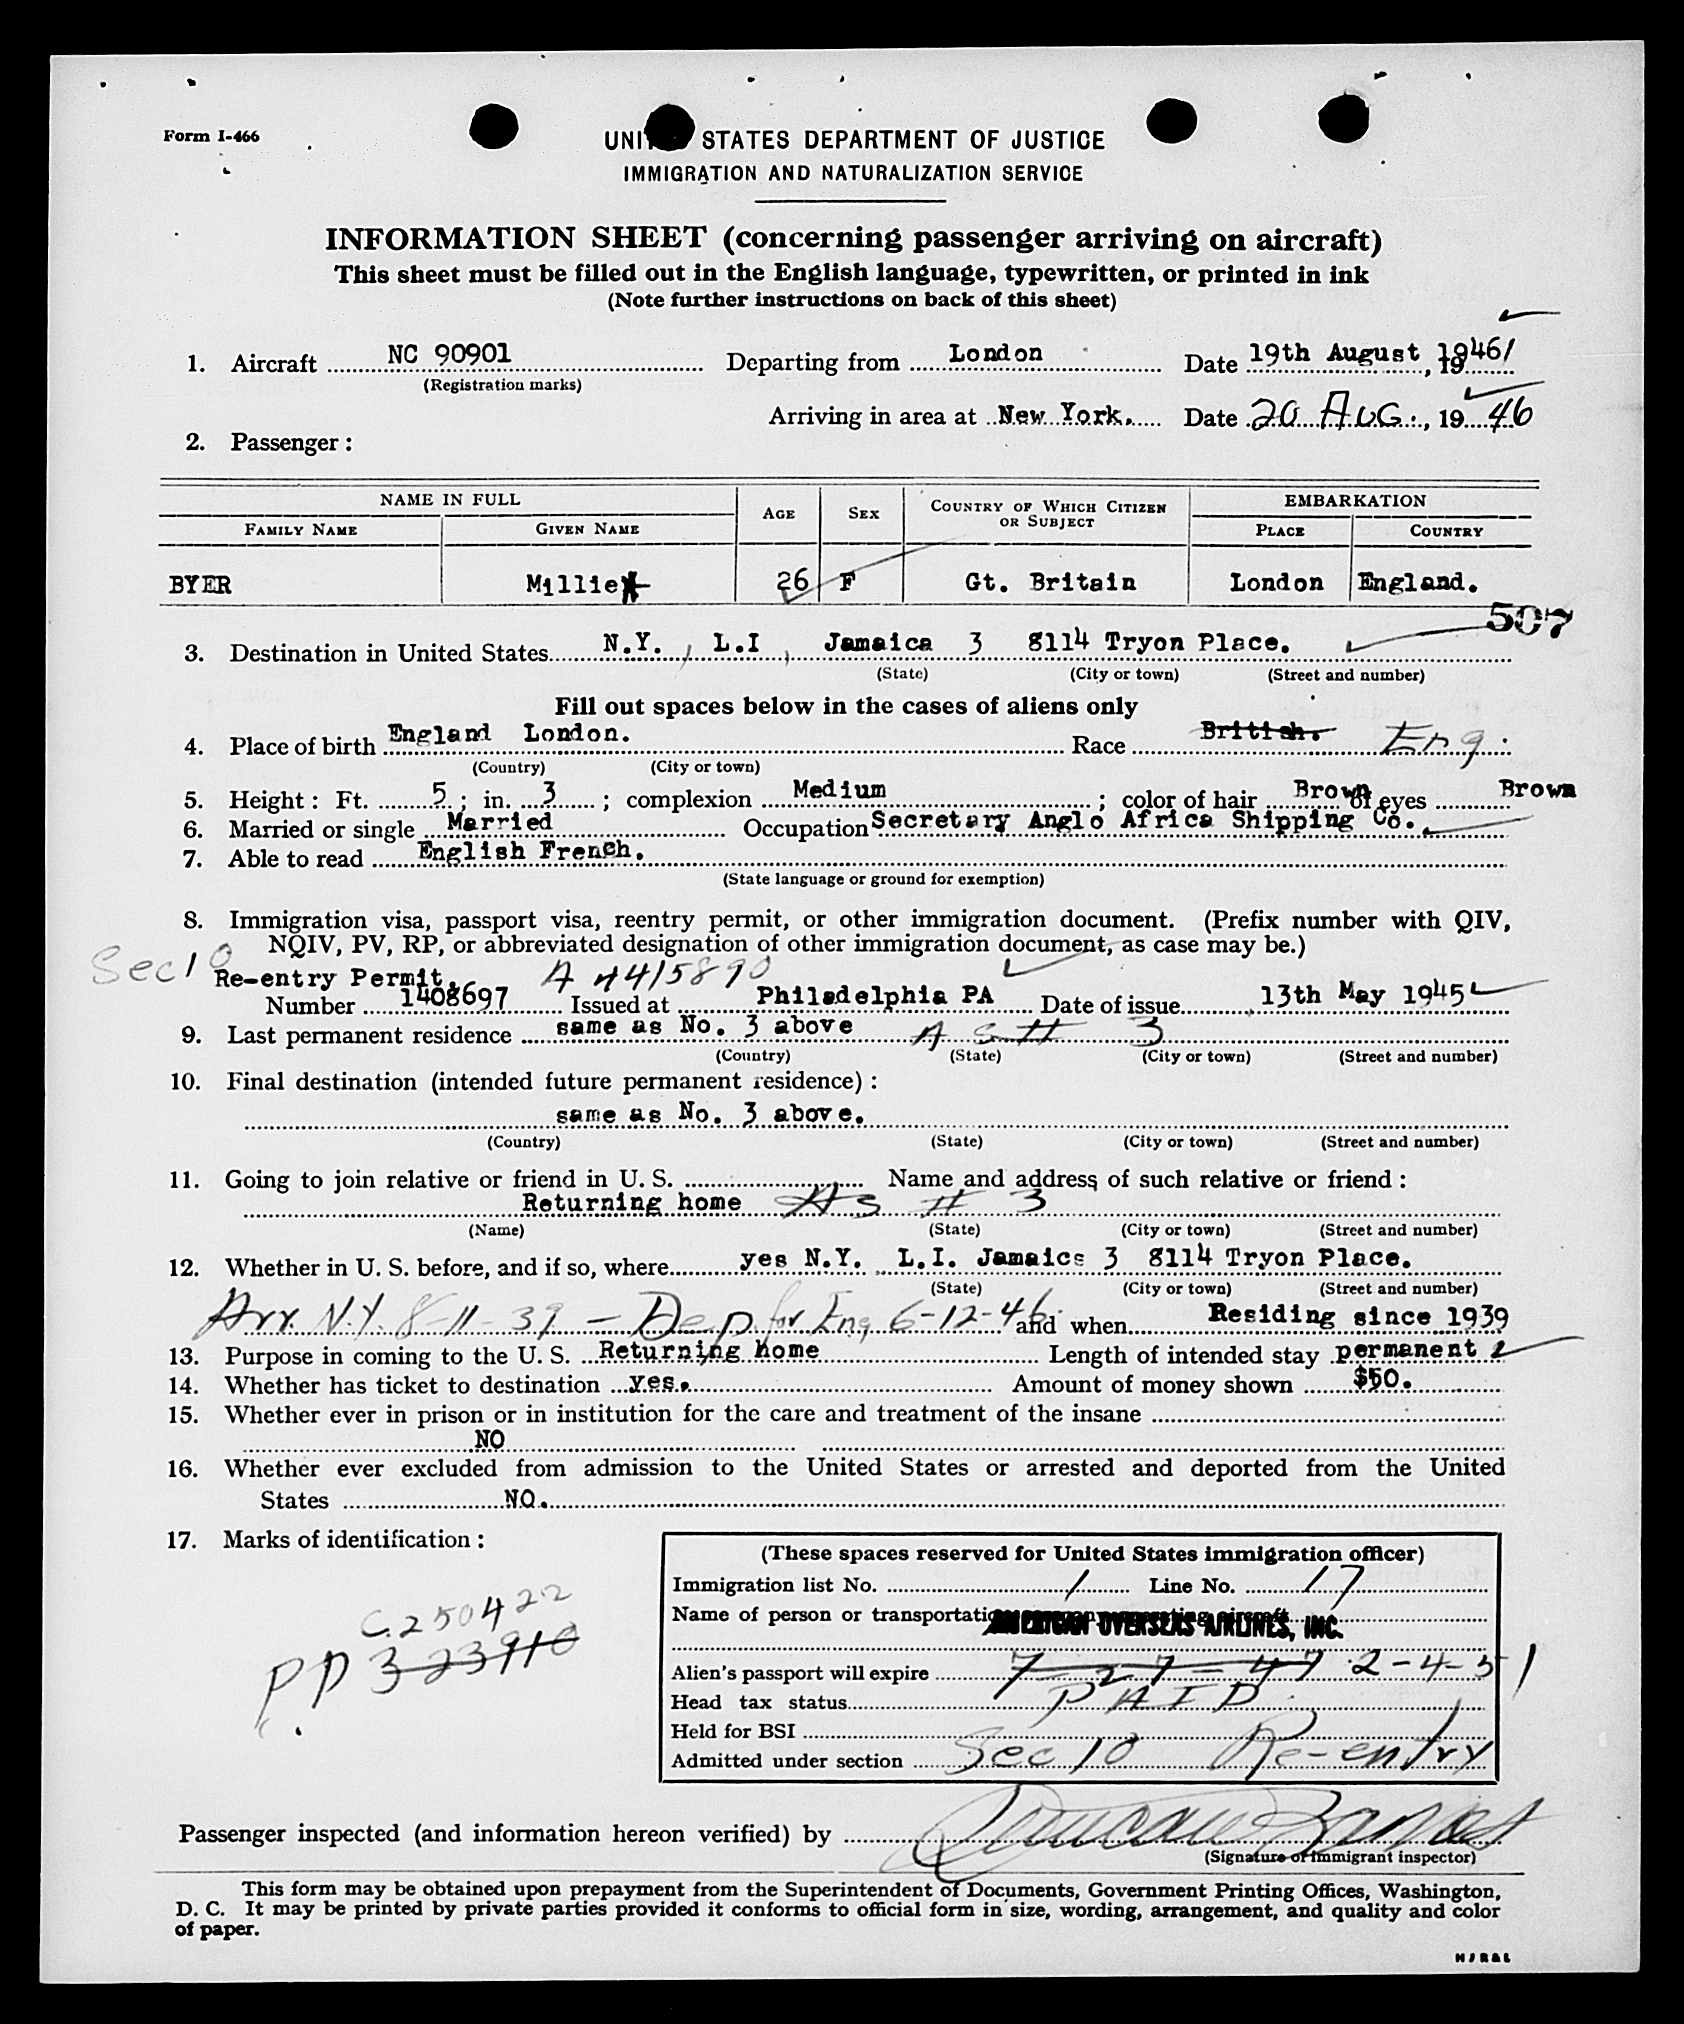 Form I-466
UNITED STATES DEPARTMENT OF JUSTICE
IMMIGRATION AND NATURALIZATION SERVICE
INFORMATION SHEET (concerning passenger arriving on aircraft)
This sheet must be filled out in the English language, typewritten, or printed in ink
(Note further instructions on back of this sheet)
1. Aircraft NC 90901 Departing from London Date 19th August 1946
(Registration marks)
Arriving in area at New York. Date 20 AUG., 1946
2. Passenger:
NAME IN FULL AGE SEX COUNTRY OF WHICH CITIZEN OR SUBJECT EMBARKATION
FAMILY NAME GIVEN NAME PLACE COUNTRY
BYER Millie 26 F Gt. Britain London England.
507
3. Destination in United States N.Y., L.I, Jamaica 3 8114 Tryon Place.
(State) (City or town) (Street and number)
Fill out spaces below in the cases of aliens only
4. Place of birth England London. Race British. Eng.
(Country) (City or town)
5. Height: Ft. 5; in. 3; complexion Medium; color of hair Brown of eyes Brown
6. Married or single Married Occupation Secretary Anglo Africa Shipping Co.
7. Able to read English French.
(State language or ground for exemption)
8. Immigration visa, passport visa, reentry permit, or other immigration document. (Prefix number with QIV,
NQIV, PV, RP, or abbreviated designation of other immigration document, as case may be.)
Sec 10 Re-entry Permit. A 4415890
Number 1408697 Issued at Philadelphia PA Date of issue 13th May 1945
9. Last permanent residence same as No. 3 above AS # 3
(Country) (State) (City or town) (Street and number)
10. Final destination (intended future permanent residence):
same as No. 3 above.
(Country) (State) (City or town) (Street and number)
11. Going to join relative or friend in U. S. Name and address of such relative or friend:
Returning home AS # 3
(Name) (State) (City or town) (Street and number)
12. Whether in U. S. before, and if so, where yes N.Y. L.I. Jamaica 3 8114 Tryon Place.
(State) (City or town) (Street and number)
Arr. N.Y. 8-11-39 - Dep. for Eng 6-12-46 and when Residing since 1939
13. Purpose in coming to the U. S. Returning home Length of intended stay permanent
14. Whether has ticket to destination yes. Amount of money shown $50.
15. Whether ever in prison or in institution for the care and treatment of the insane
NO
16. Whether ever excluded from admission to the United States or arrested and deported from the United
States NO.
17. Marks of identification:
C.250422
PP 323910
(These spaces reserved for United States immigration officer)
Immigration list No. 1 Line No. 17
Name of person or transportation company operating aircraft
AMERICAN OVERSEAS AIRLINES, INC.
Alien's passport will expire 7-27-47 2-4-51
Head tax status PAID
Held for BSI
Admitted under section Sec 10 Re-entry
Passenger inspected (and information hereon verified) by
(Signature of immigrant inspector)
This form may be obtained upon prepayment from the Superintendent of Documents, Government Printing Offices, Washington,
D. C. It may be printed by private parties provided it conforms to official form in size, wording, arrangement, and quality and color
of paper.